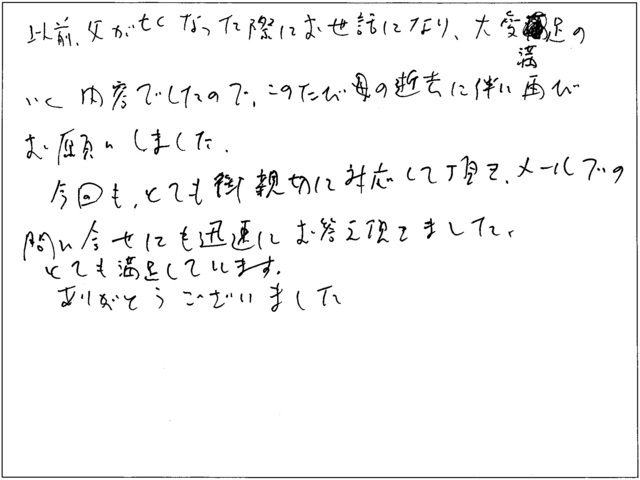 以前、父が亡くなった際にお世話になり、大変満足の
いく内容でしたので、このたび母の逝去に伴い再び
お願いしました。
今回も、とても御親切に対応して頂き、メールでの
問い合せにも迅速にお答え頂きました。
とても満足しています。
ありがとうございました